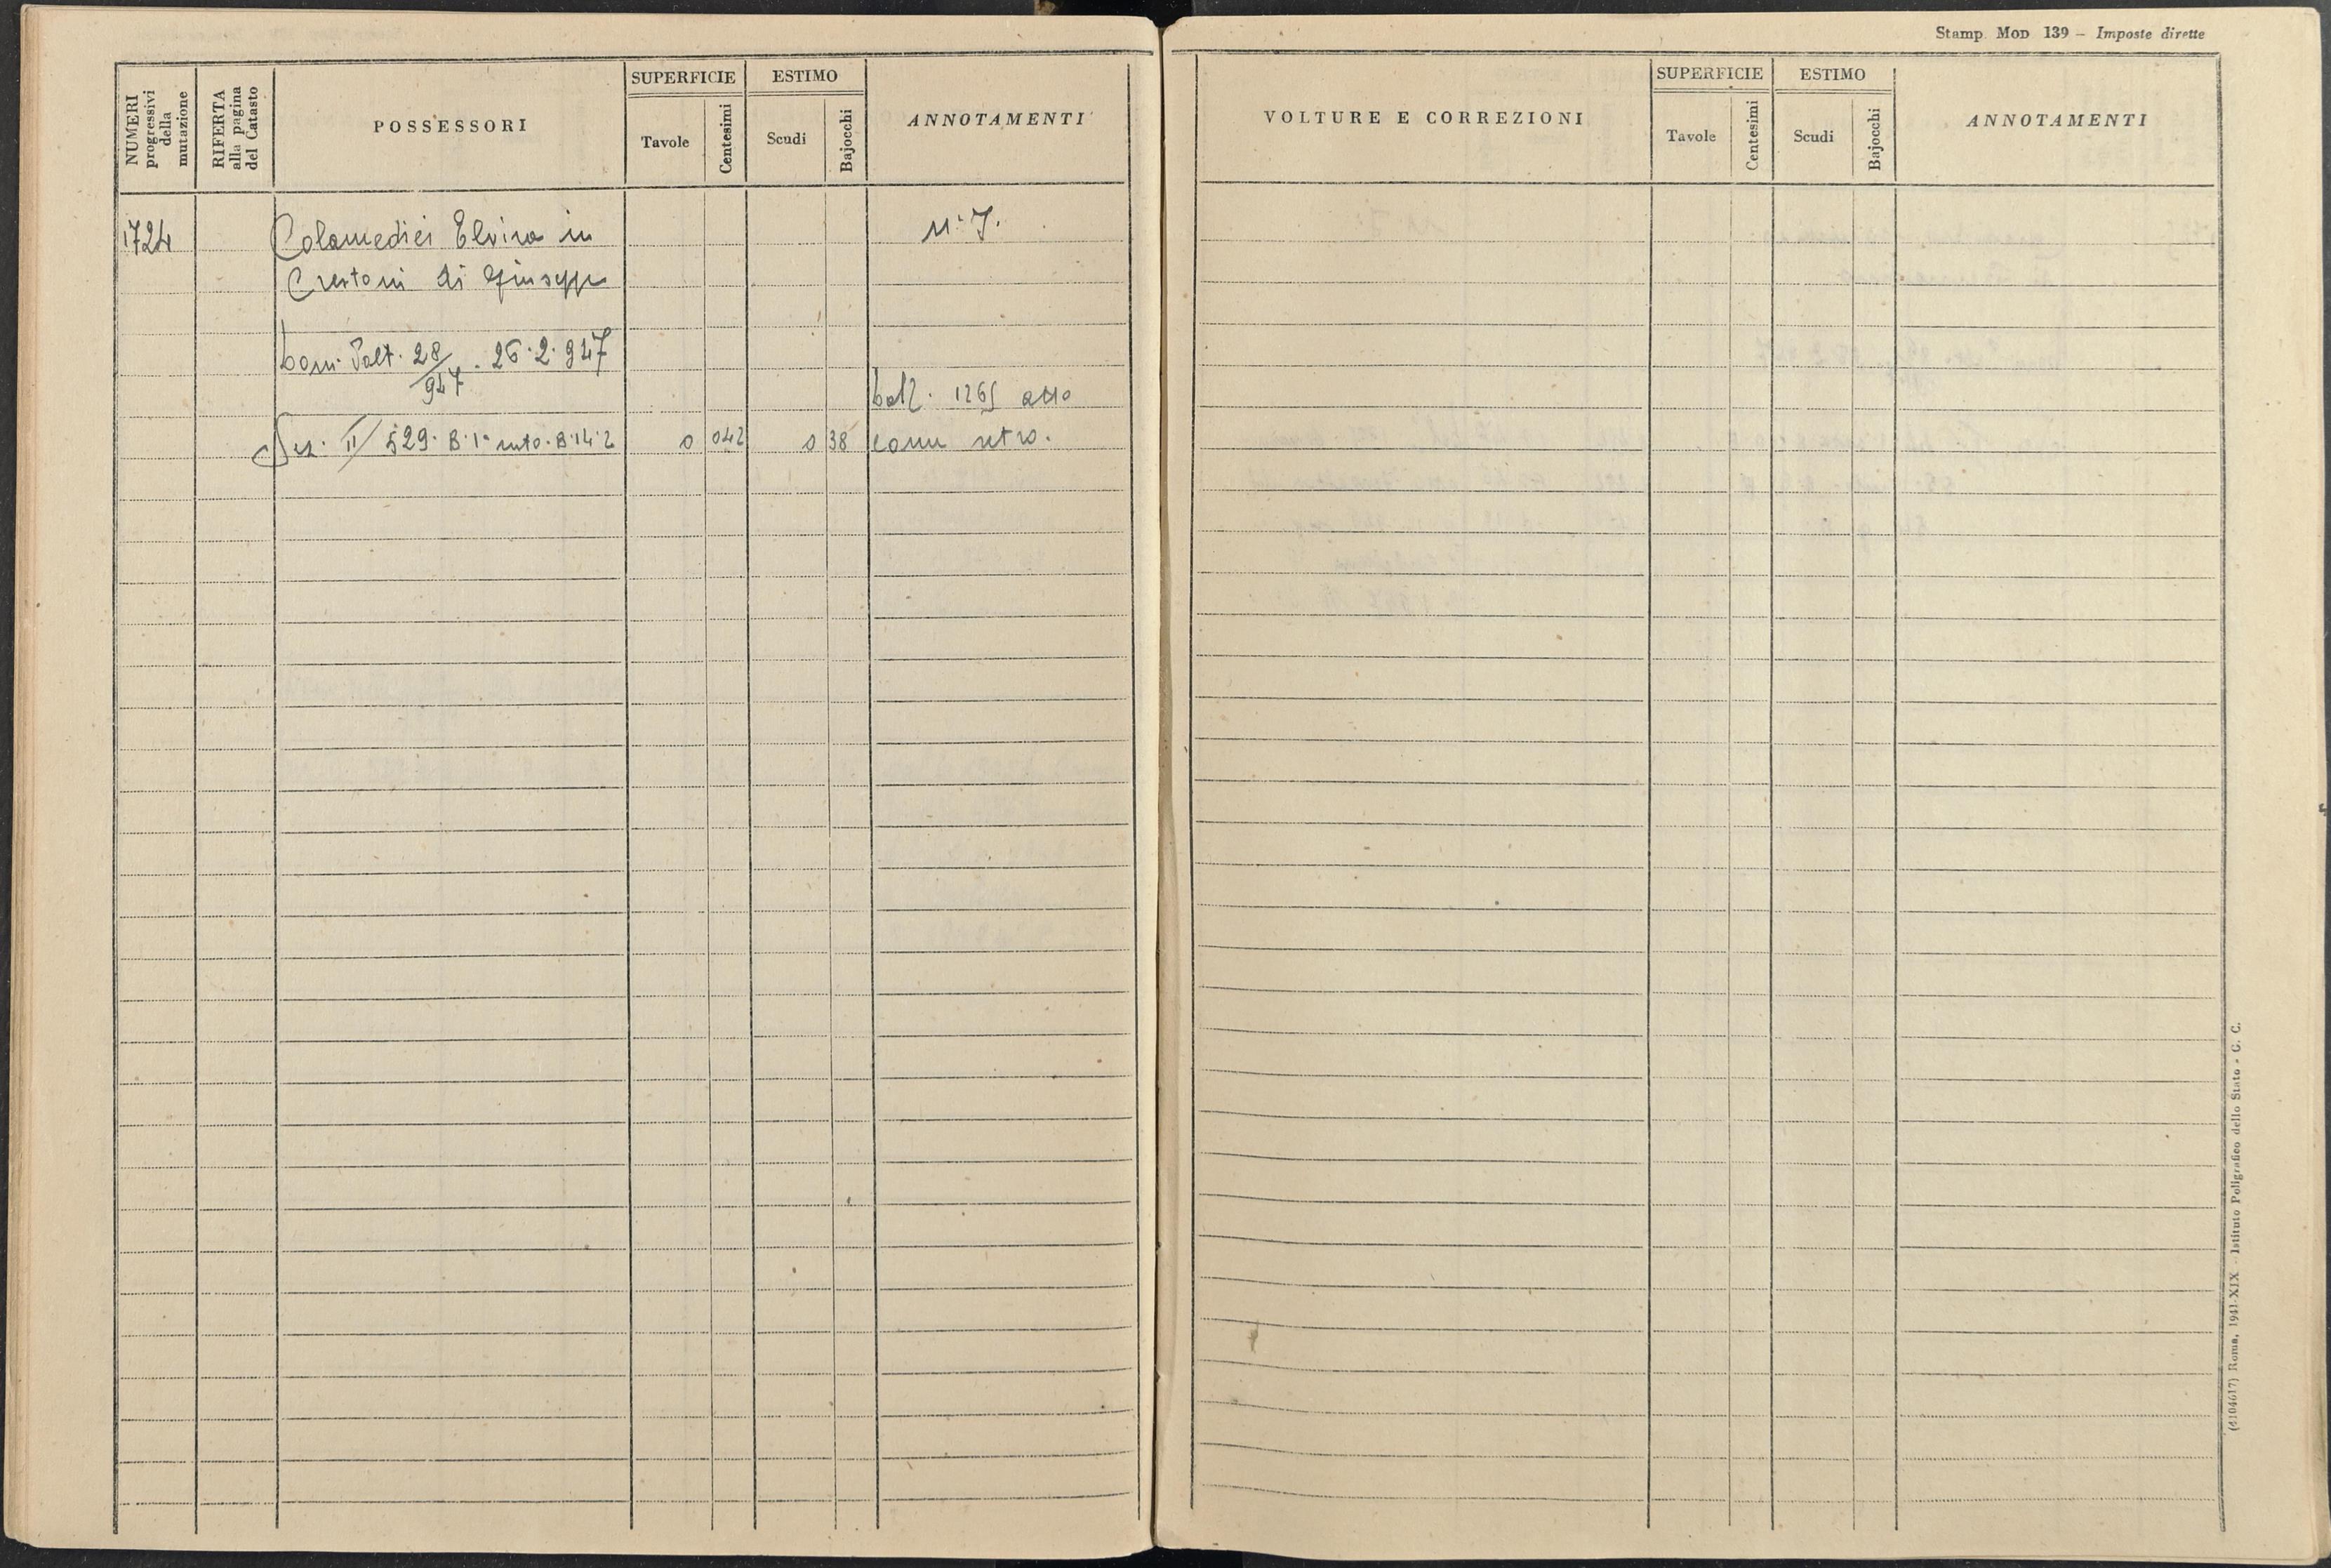 Stamp. Mod 139 – Imposte dirette
NUMERI
progressivi
della
mutazione
RIFERTA
alla pagina
del Catasto
POSSESSORI
SUPERFICIE
Tavole
Centesimi
ESTIMO
Scudi
Bajocchi
ANNOTAMENTI
1724
Colamedici Elvira in
N. 7.
Crestoni di Giuseppe
28/947 . 26.2.947
1265 atto
Sez. II / 529. B. 1° 8.14.2 0 042 0 38 come retro.
VOLTURE E CORREZIONI
SUPERFICIE
Tavole
Centesimi
ESTIMO
Scudi
Bajocchi
ANNOTAMENTI
(4104617) Roma, 1941-XIX - Istituto Poligrafico dello Stato - G. C.